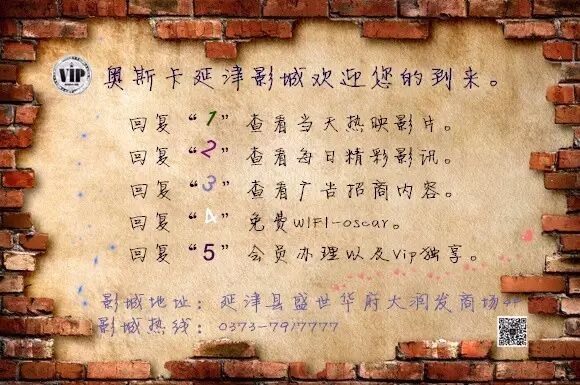 VIP 奥斯卡延津影城欢迎您的到来。
回复“1”查看当天热映影片。
回复“2”查看每日精彩影讯。
回复“3”查看广告招商内容。
回复“4”免费WIFI-oscar。
回复“5”会员办理以及Vip独享。
影城地址：延津县盛世华府大润发商场4F
影城热线：0373-7917777